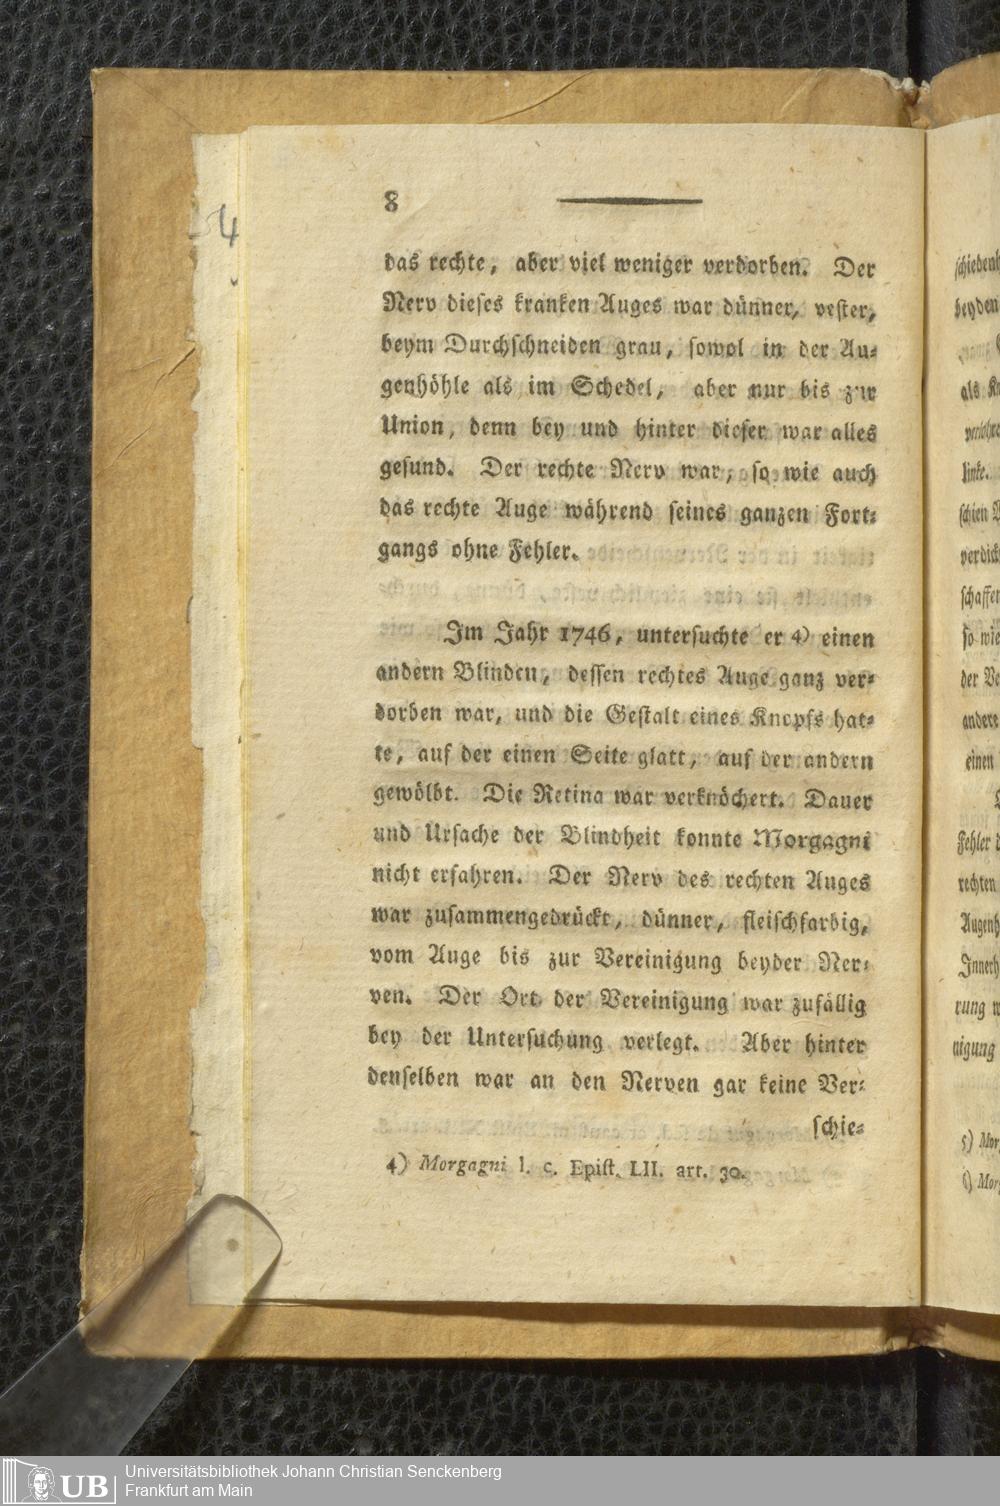 8
das rechte, aber viel weniger verdorben. Der
Nerv dieses kranken Auges war dünner, vester,
beym Durchschneiden grau, sowol in der Au-
genhöhle als im Schedel, aber nur bis zur
Union, denn bey und hinter dieser war alles
gesund. Der rechte Nerv war, so wie auch
das rechte Auge während seines ganzen Fort-
gangs ohne Fehler.
Im Jahr 1746, untersuchte er 4) einen
andern Blinden, dessen rechtes Auge ganz ver-
dorben war, und die Gestalt eines Knopfs hat-
te, auf der einen Seite glatt, auf der andern
gewölbt. Die Retina war verknöchert. Dauer
und Ursache der Blindheit konnte Morgagni
nicht erfahren. Der Nerv des rechten Auges
war zusammengedrückt, dünner, fleischfarbig,
vom Auge bis zur Vereinigung beyder Ner-
ven. Der Ort der Vereinigung war zufällig
bey der Untersuchung verlegt. Aber hinter
denselben war an den Nerven gar keine Ver-
schie-
4) Morgagni l. c. Epist. LII. art. 30.
54
schieden
beyden
als
linke.
schien
verdick
schaffen
so wie
der Ve
andere
einen
Fehler
rechten
Augenh
Innerh
rung
nigung
5) Mor
6) Mor
UB
Universitätsbibliothek Johann Christian Senckenberg
Frankfurt am Main